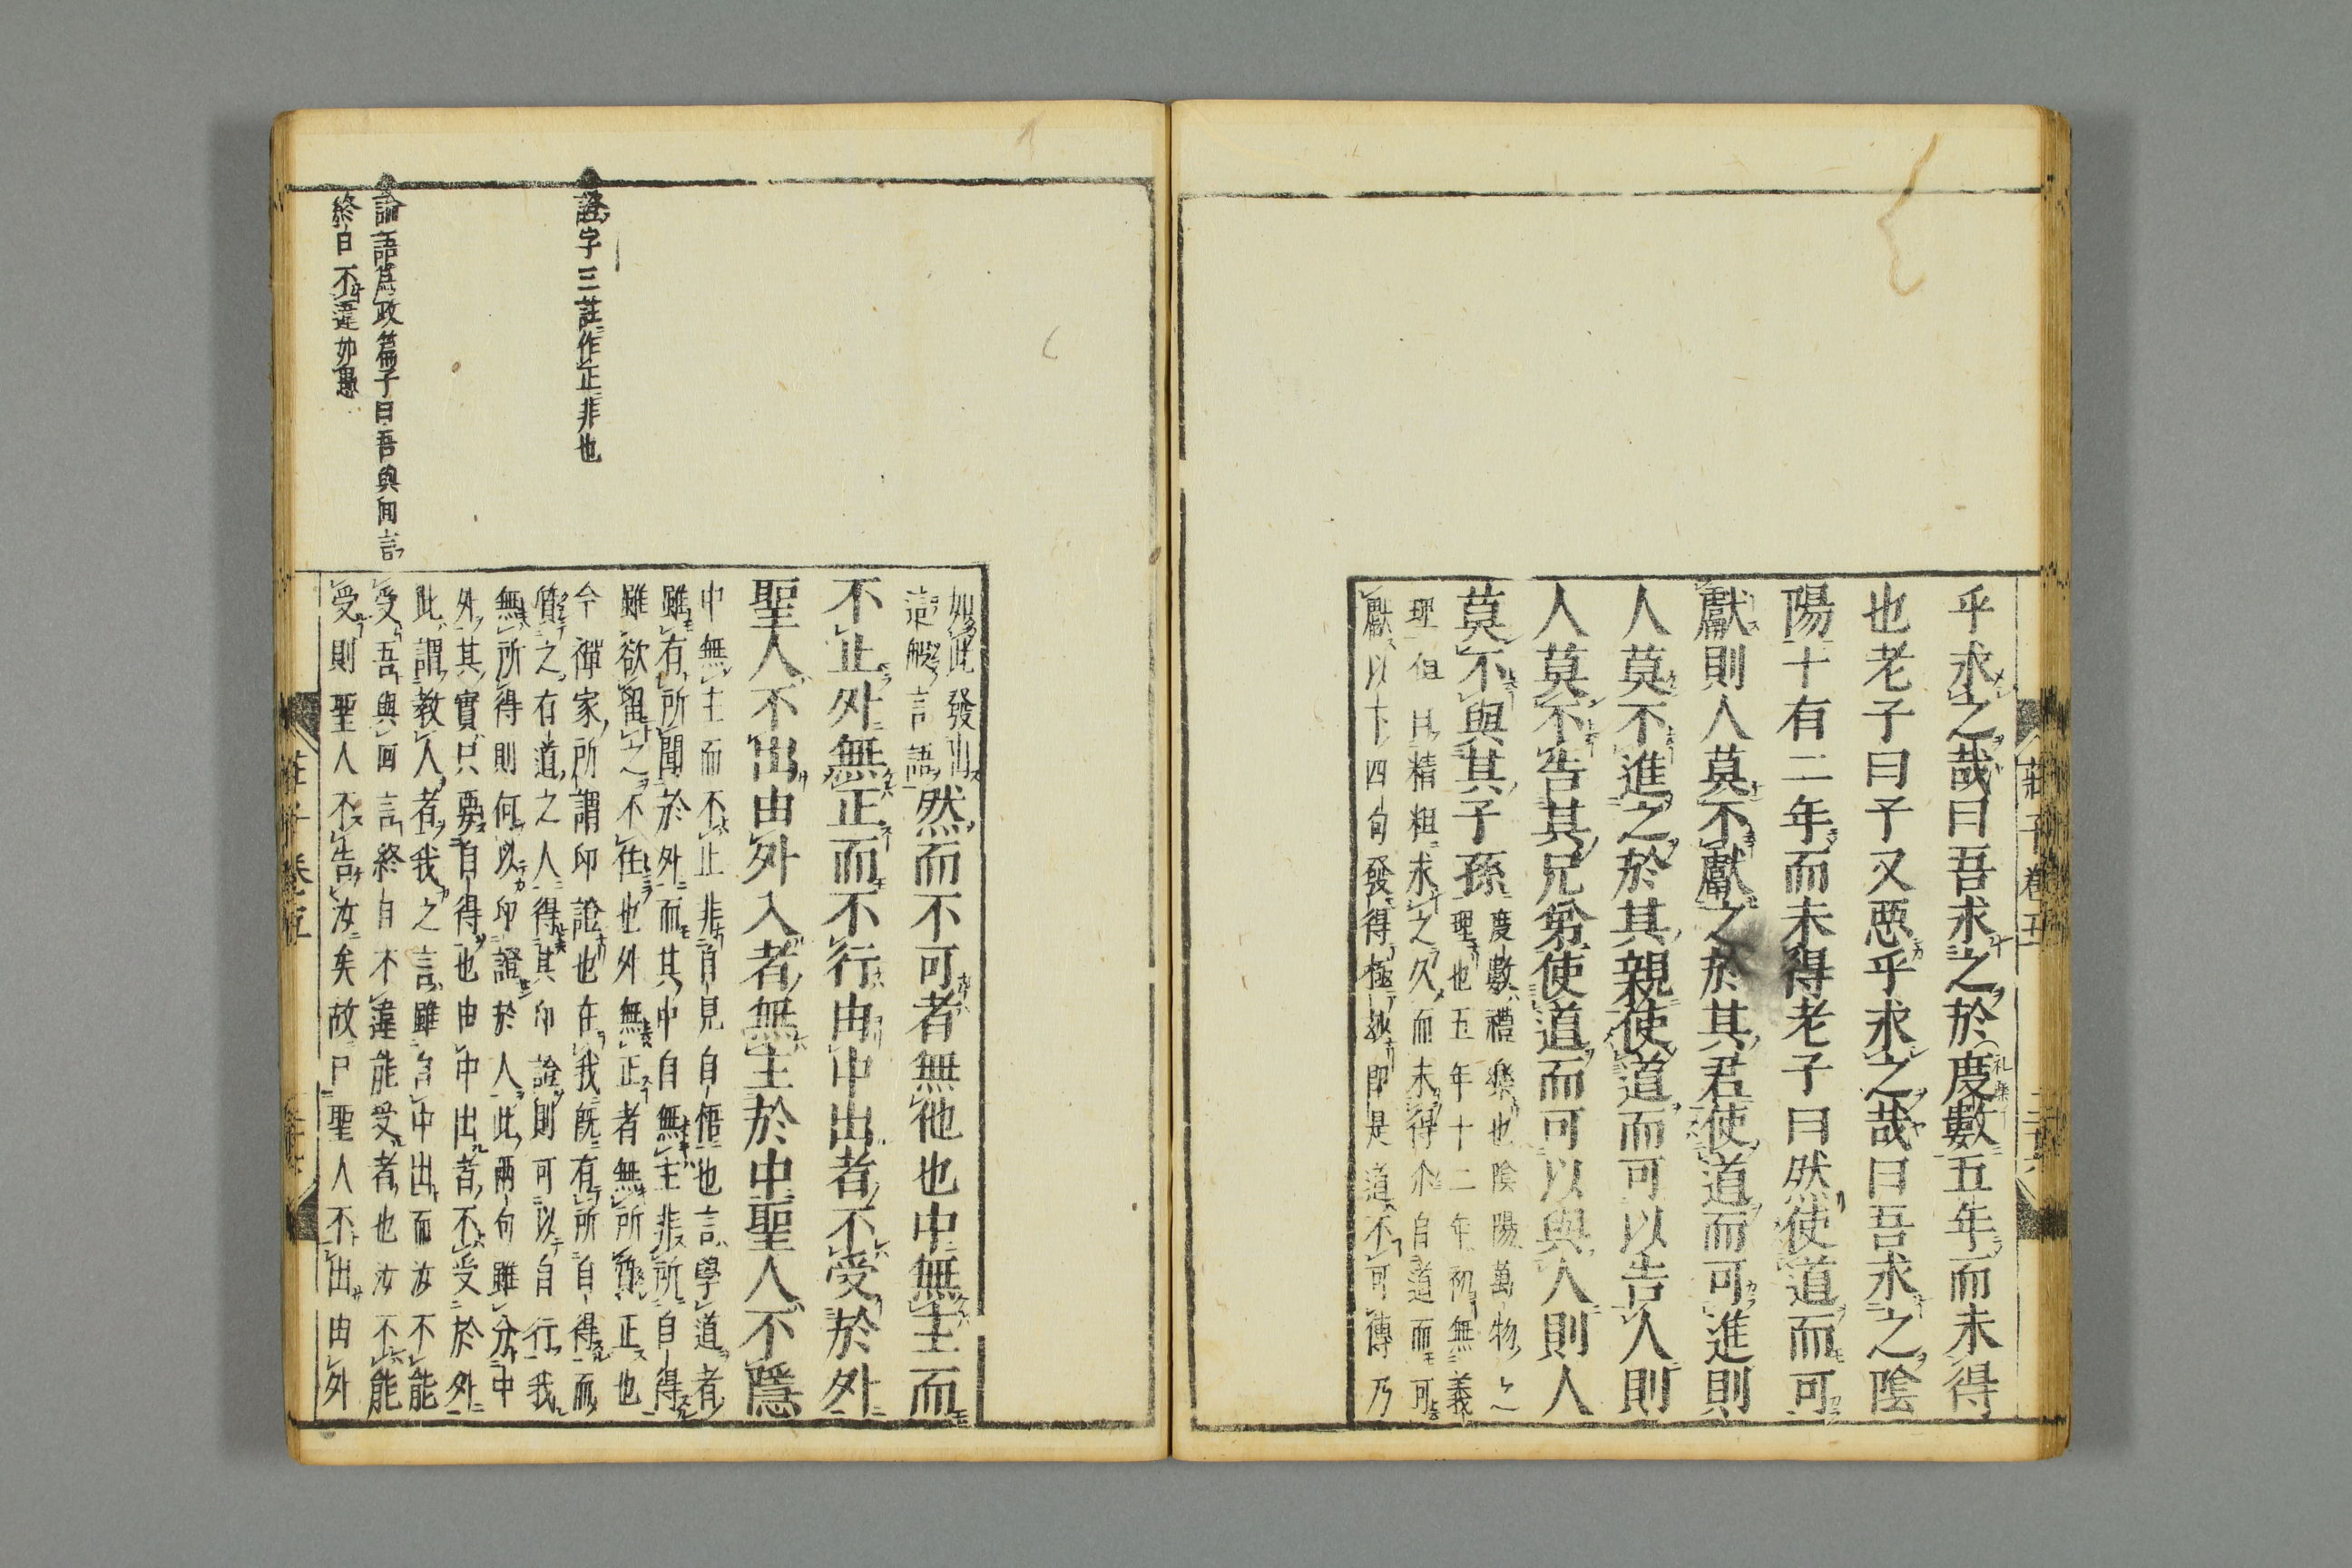 乎求之哉曰吾求之於度數五年而未得
也老子曰子又惡乎求之哉曰吾求之陰
陽十有二年而未得老子曰然使道而可
獻則人莫不獻之於其君使道而可進則
人莫不進之於其親使道而可以告人則
人莫不告其兄弟使道而可以與人則人
莫不與其子孫
度數禮樂也陰陽萬物之
理也五年十二年初無義
理但且精粗求之久而未得尒自道而可
獻以下四句發得極妙即是道不可傳乃
莊子卷五
如此發出
這般言語
然而不可者無他也中無主而
不止外無正而不行由中出者不受於外
聖人不出由外入者無主於中聖人不隱
中無主而不止非自見自悟也言學道者
雖有所聞於外而其中自無主非所自得
雖欲留之不住也外無正者無所質正也
今禪家所謂印證也在我既有所自得而
質之有道之人得其印證則可以自行我
無所得則何以印證於人此兩句雖分中
外其實只要自得也由中出者不受於外
此謂教人者我之言雖自中出而汝不能
受吾與回言終日不違能受者也汝不能
受則聖人不告汝矣故曰聖人不出由外
證字三註作正非也
論語為政篇子曰吾與回言
終日不違如愚
莊子卷五